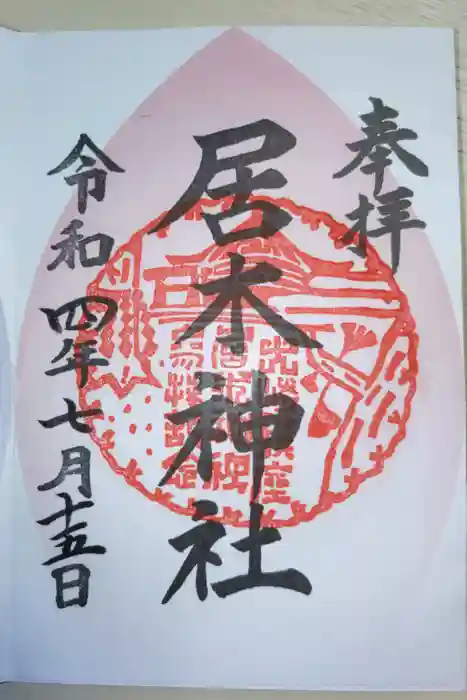 奉拝
居木神社
令和四年七月十五日